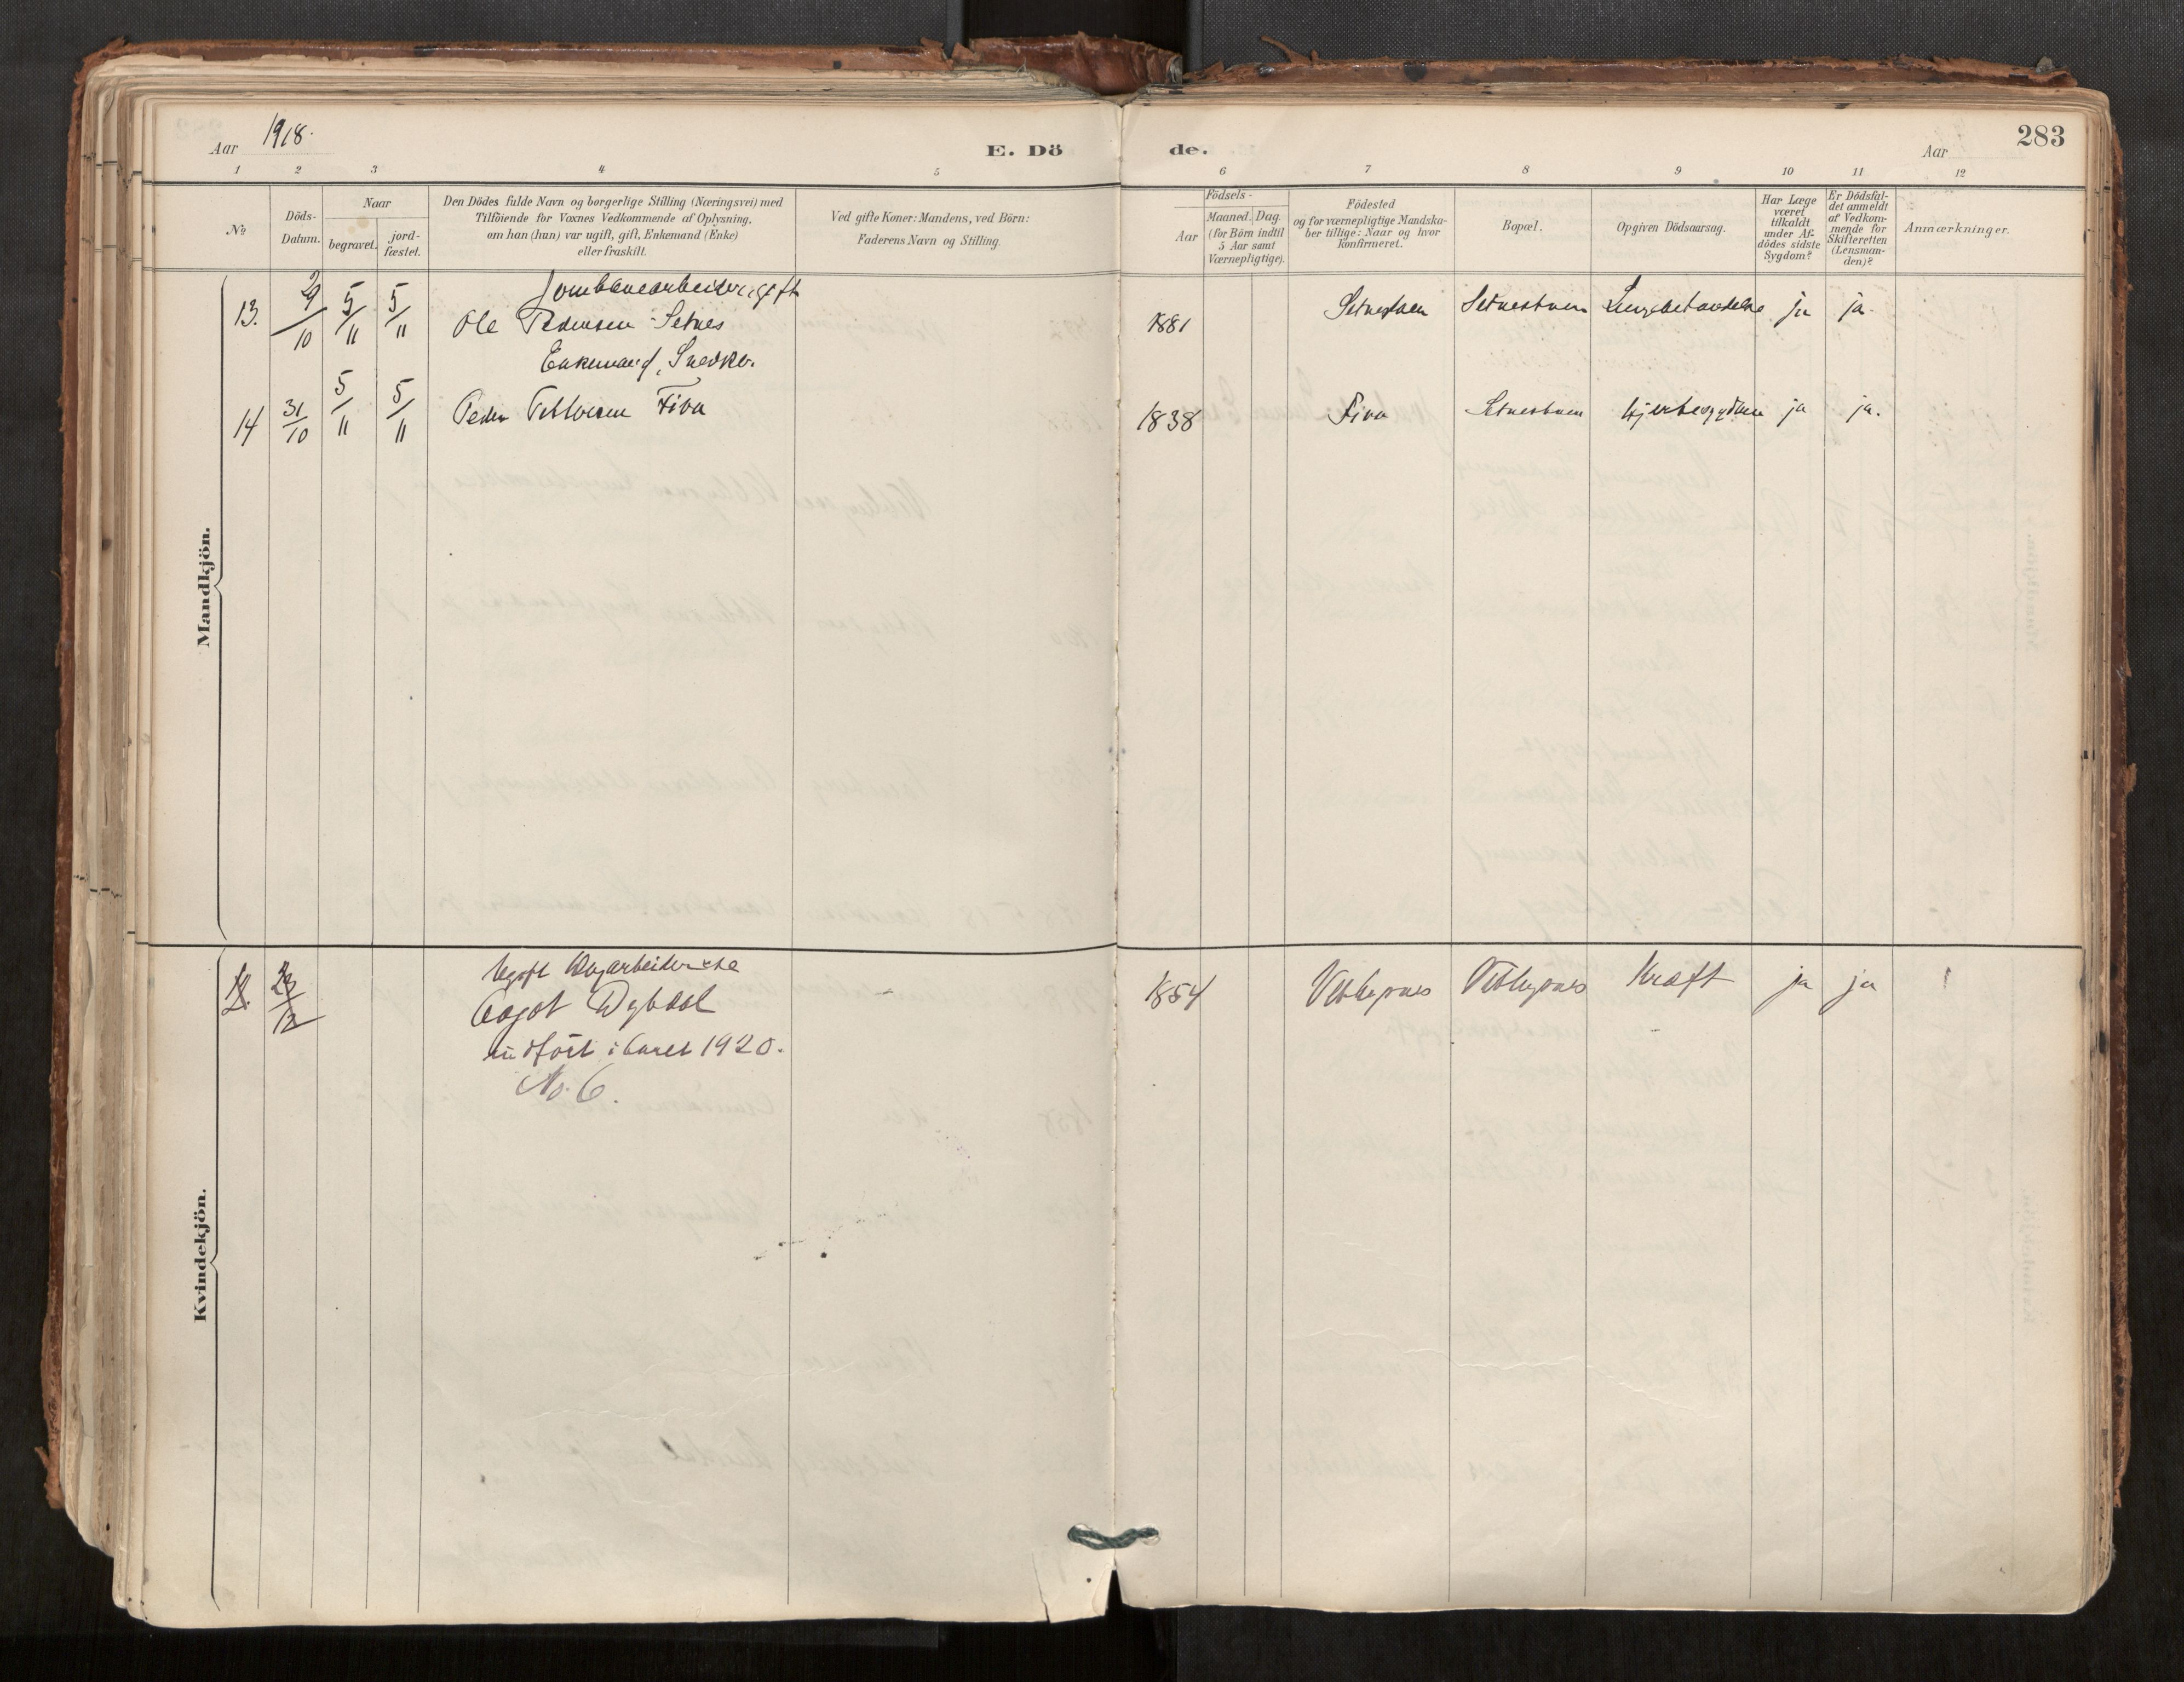 Aar 1918.
E. Dö
de.
Aar
283
1 2 3 4 5 6 7 8 9 10 11 12
No
Döds-
Datum.
Naar
begravet.
jord-
fæstet.
Den Dödes fulde Navn og borgerlige Stilling (Næringsvei) med
Tilföiende for Voxnes Vedkommende af Oplysning,
om han (hun) var ugift, gift, Enkemand (Enke)
eller fraskilt.
Ved gifte Koner: Mandens, ved Börn:
Faderens Navn og Stilling.
Födsels-
Aar
Maaned. Dag.
(for Börn indtil
5 Aar samt
Værnepligtige).
Födested
og for værnepligtige Mandska-
ber tillige: Naar og hvor
konfirmeret.
Bopæl.
Opgiven Dödsaarsag.
Har Læge
været
tilkaldt
under Af-
dödes sidste
Sygdom?
Er Dödsfal-
det anmeldt
af Vedkom-
mende for
Skifteretten
(Lensman-
den)?
Anmærkninger.
Mandkjön.
Jernbanearbeider, gift
13. 29/10 5/11 5/11 Ole Pedersen Setnes 1881 Setnestuen Lungebetændelse ja ja.
Enkemand, Snedker.
14 31/10 5/11 5/11 Peder Fiva 1838 Fiva Setnestuen Hjertesygdom ja ja.
Kvindekjön.
Ugift
Aagot Dybdal 1854 Veblugnes Veblugnes Kræft ja ja
indført i Aaret 1920.
No. 6.